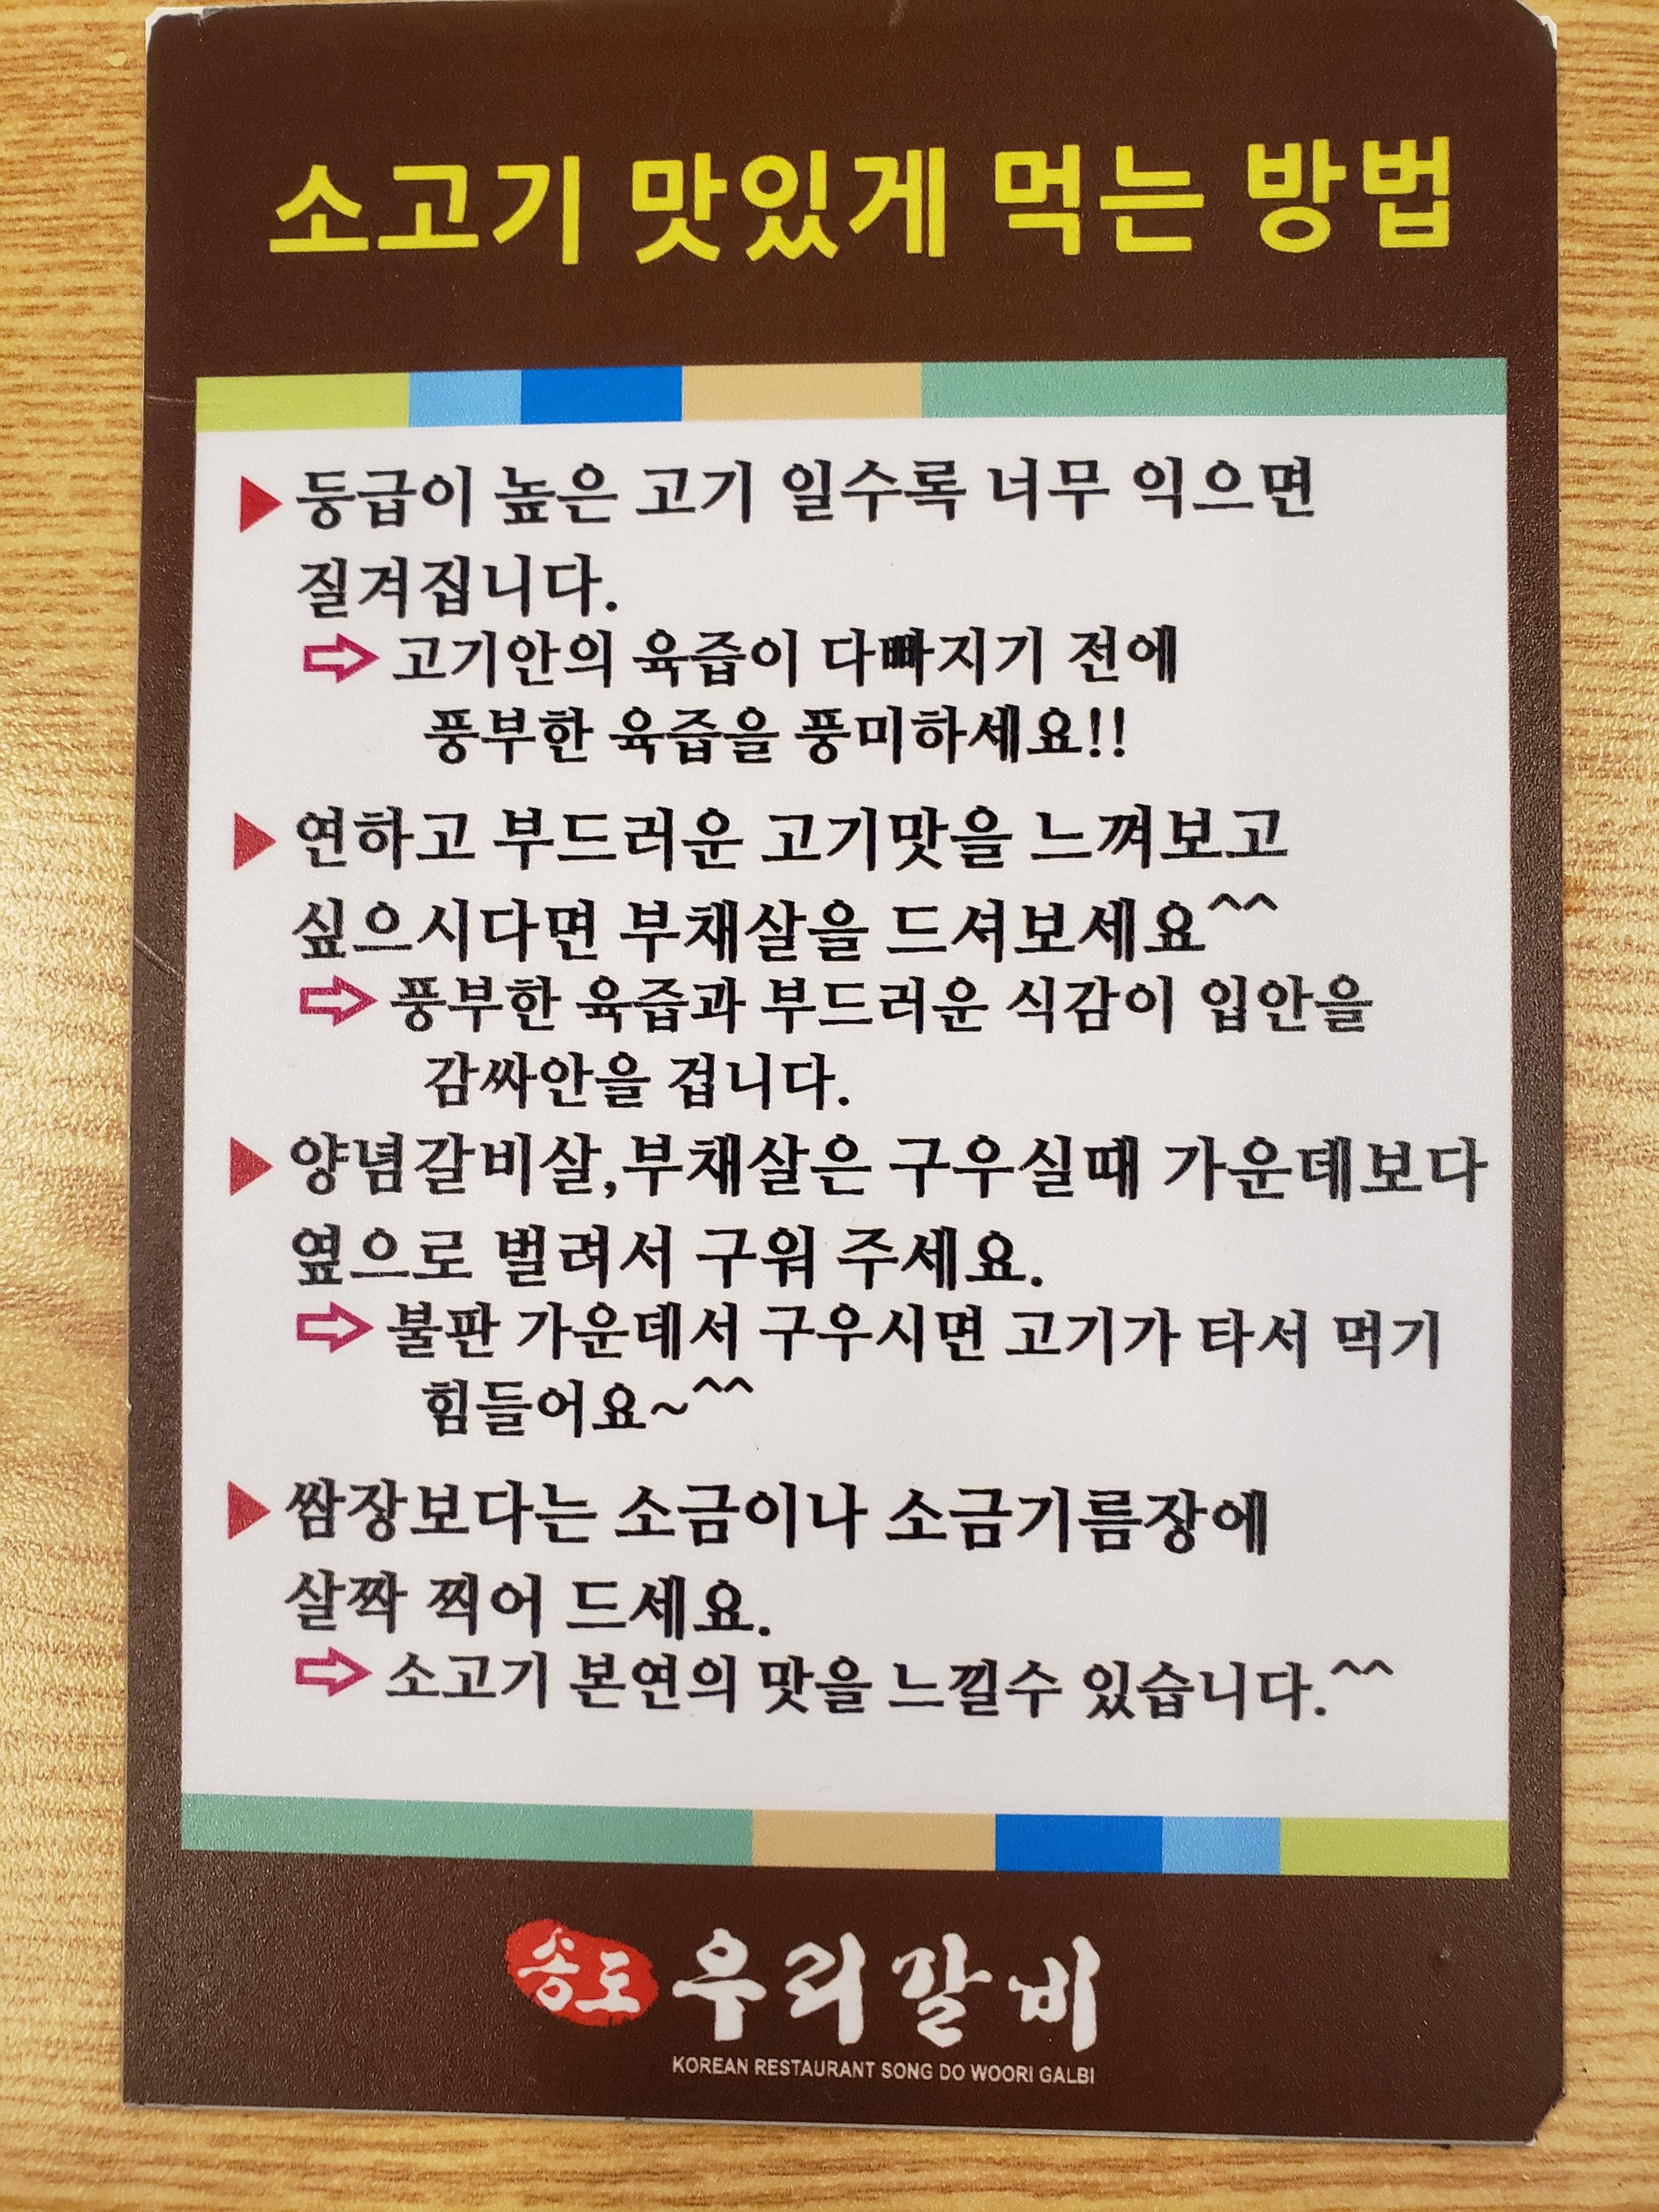 소고기 맛있게 먹는 방법
▶둥급이 높은 고기 일수록 너무 익으면
질겨집니다.
⇨고기안의 육즙이 다빠지기 전에
풍부한 육즙을 풍미하세요!!
▶연하고 부드러운 고기맛을 느껴보고
싶으시다면 부채살을 드셔보세요^^
⇨풍부한 육즙과 부드러운 식감이 입안을
감싸안을 겁니다.
▶양념갈비살,부채살은 구우실때 가운데보다
옆으로 벌려서 구워 주세요.
⇨불판 가운데서 구우시면 고기가 타서 먹기
힘들어요~^^
▶쌈장보다는 소금이나 소금기름장에
살짝 찍어 드세요.
⇨소고기 본연의 맛을 느낄수 있습니다.^^
송도 우리갈비
KOREAN RESTAURANT SONG DO WOORI GALBI